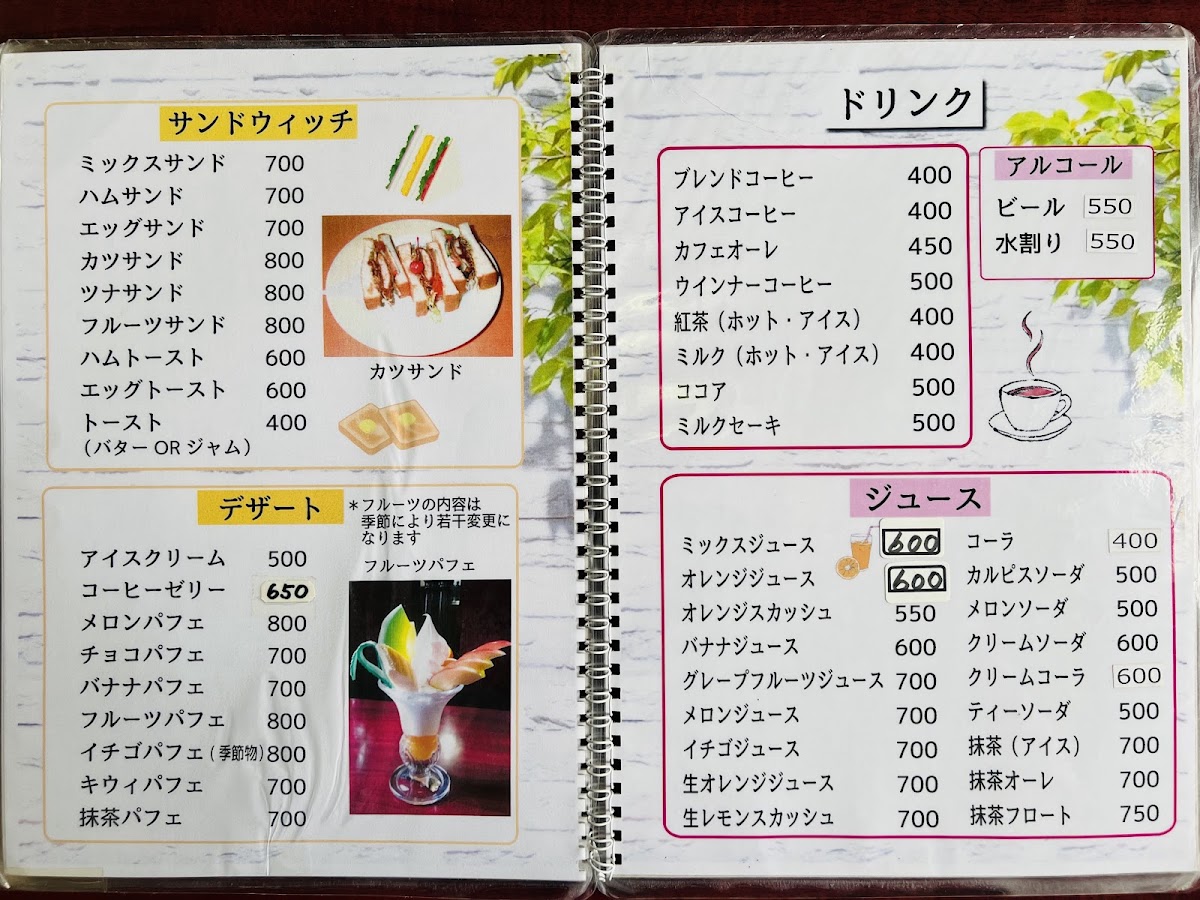 サンドウィッチ
ミックスサンド 700
ハムサンド 700
エッグサンド 700
カツサンド 800
ツナサンド 800
フルーツサンド 800
ハムトースト 600
エッグトースト 600
トースト 400
（バター OR ジャム）
カツサンド
デザート
＊フルーツの内容は
季節により若干変更に
なります
フルーツパフェ
アイスクリーム 500
コーヒーゼリー 650
メロンパフェ 800
チョコパフェ 700
バナナパフェ 700
フルーツパフェ 800
イチゴパフェ（季節物）800
キウィパフェ 700
抹茶パフェ 700
ドリンク
ブレンドコーヒー 400
アイスコーヒー 400
カフェオーレ 450
ウインナーコーヒー 500
紅茶（ホット・アイス） 400
ミルク（ホット・アイス） 400
ココア 500
ミルクセーキ 500
アルコール
ビール 550
水割り 550
ジュース
ミックスジュース 600
オレンジジュース 600
オレンジスカッシュ 550
バナナジュース 600
グレープフルーツジュース 700
メロンジュース 700
イチゴジュース 700
生オレンジジュース 700
生レモンスカッシュ 700
コーラ 400
カルピスソーダ 500
メロンソーダ 500
クリームソーダ 600
クリームコーラ 600
ティーソーダ 500
抹茶（アイス） 700
抹茶オーレ 700
抹茶フロート 750